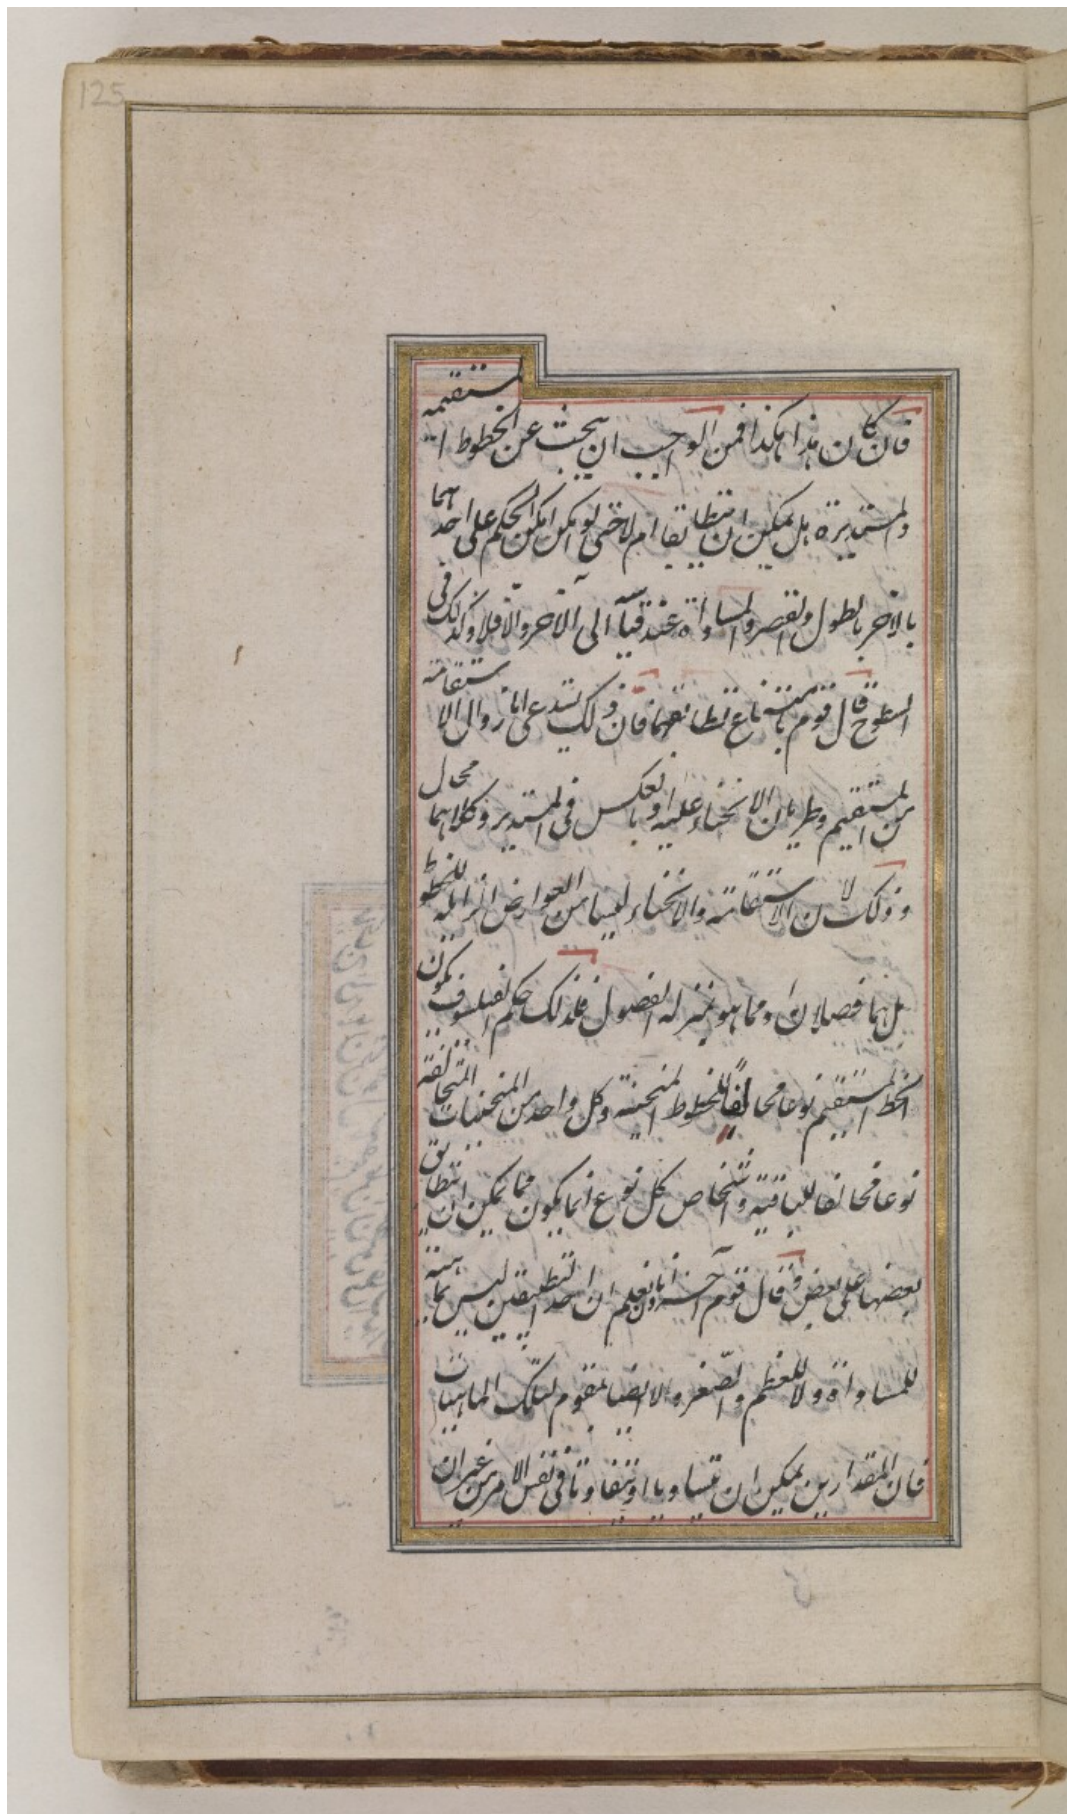 125
فان كان هذا هكذا فمن الواجب ان يبحث عن الخطوط المستقيمة
والمستديرة هل يمكن ان تتطابقا ام لا حتى لو امكن امكن الحكم على احدهما
بالاخر بالطول والقصر والمساواة عند قياسه الى الآخر والّا فلا وكذلك فى
السطوح قال قوم بامتناع تطابقهما فان ذلك يستدعى اما زوال الاستقامة
من المستقيم وطريان الانحناء عليه او بالعكس فى المستدير وكلاهما محال
وذلك لان الاستقامة والانحناء ليسا من العوارض الزايلة للخطوط
بل هما فصلان او مما هو بمنزلة الفصول فلذلك حكم الفيلسوف بكون
الخط المستقيم نوعا مخالفًا للخطوط المنحنية وكل واحد من المنحنيات المتخالفة
نوعا مخالفا للباقية واشخاص كل نوع انما يكون مما يمكن ان ينطابق
بعضها على بعض وقال قوم آخرون انا نعلم ان احد التطبيقين ليس بماهية
للمساواة ولا للعظم والصّغر ولا ايضا بمقوم لتلك الماهيات
فان المقدارين يمكن ان يتساويا او يتفاوتا فى نفس الامر من غير ان